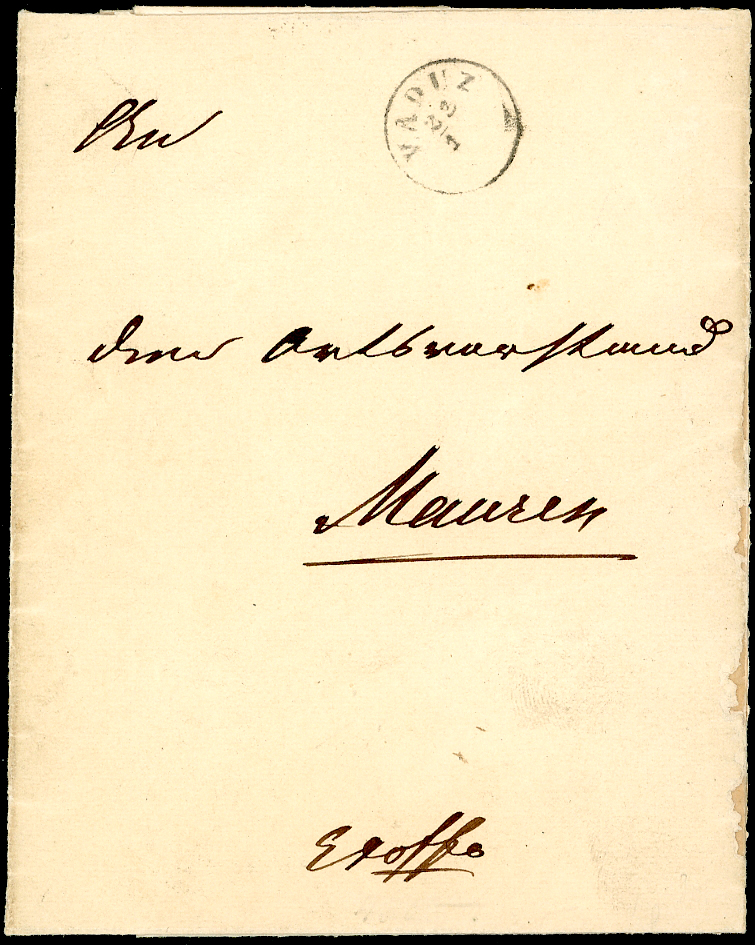 VADUZ
23/1
An
den Ortsvorstand
Mauren
Exoffo